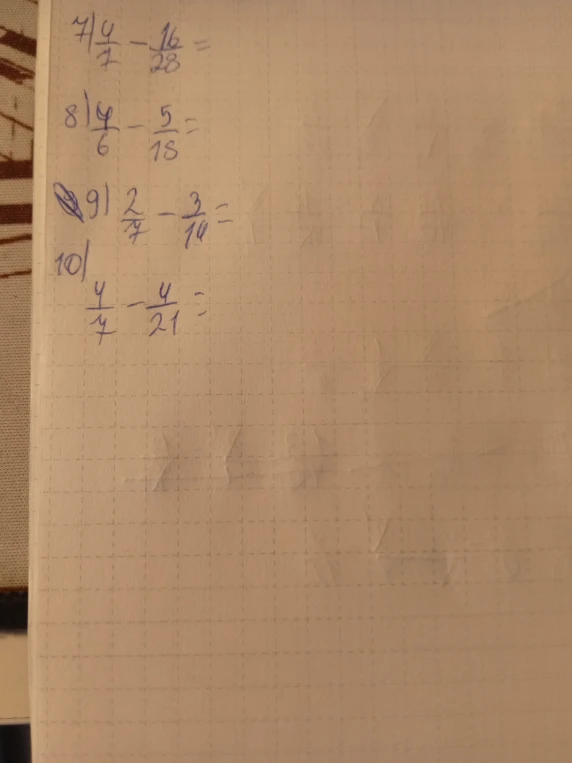 7) 4/7 - 16/28 =
8) 4/6 - 5/18 =
9) 2/7 - 3/14 =
10)
4/7 - 4/21 =